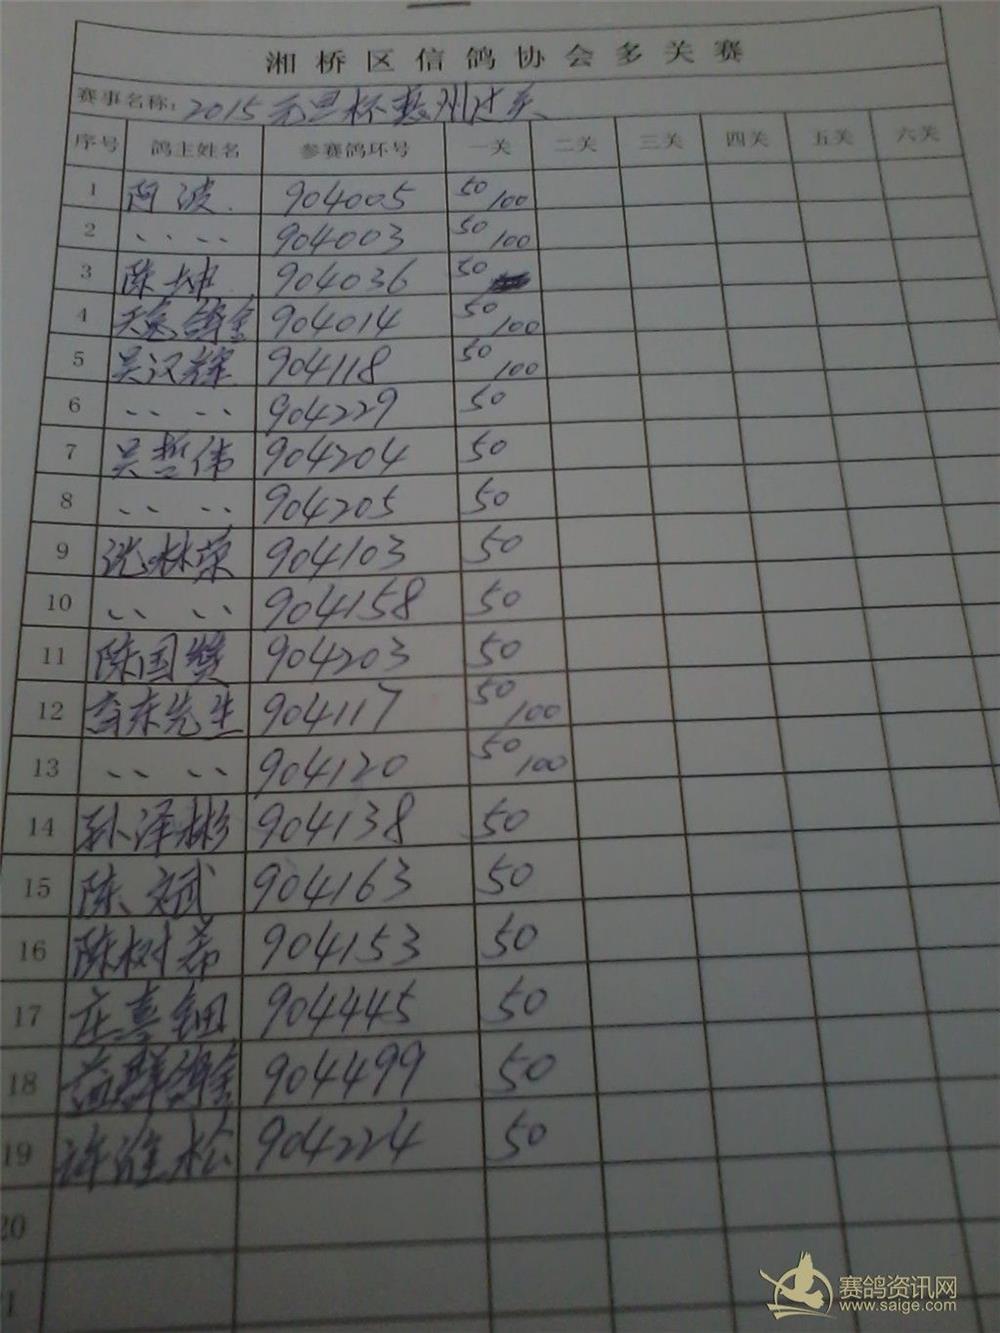 湘桥区信鸽协会多关赛
赛事名称: 2015元旦杯惠州过关
序号 鸽主姓名 参赛鸽环号 一关 二关 三关 四关 五关 六关
1 阿波 904005 50/100
2 、、 、、 904003 50/100
3 陈坤 904036 50
4 904014 50/100
5 吴汉辉 904118 50/100
6 、、 、、 904229 50
7 吴哲伟 904204 50
8 、、 、、 904205 50
9 沈林荣 904103 50
10 、、 、、 904158 50
11 陈国 904203 50
12 东先生 904117 50/100
13 、、 、、 904120 50/100
14 孙泽彬 904138 50
15 陈文武 904163 50
16 陈树希 904153 50
17 庄喜钿 904445 50
18 益群鸽舍 904499 50
19 许 松 904224 50
20
赛鸽资讯网
www.saige.com